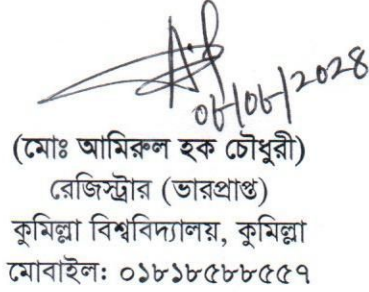 (মোঃ আমিরুল হক চৌধুরী)
রেজিস্ট্রার (ভারপ্রাপ্ত)
কুমিল্লা বিশ্ববিদ্যালয়, কুমিল্লা
মোবাইল: ০১৮১৮৫৮৮৫৫৭